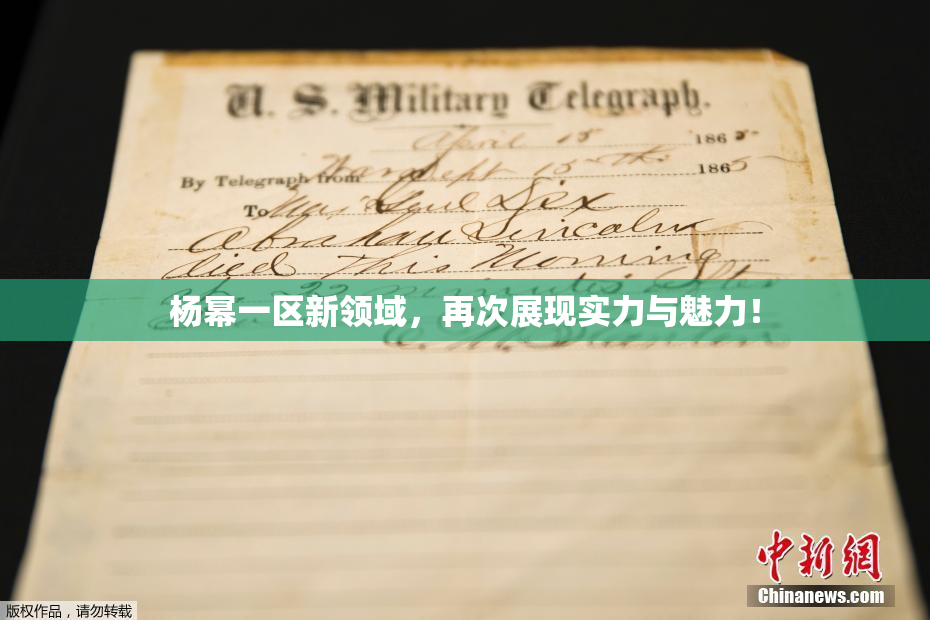 U. S. Military Telegraph.
April 15 1865
By Telegraph from War Dept 15th 1865
To Maj Genl Dix
Abraham Lincoln
died This Morning
at 22 minutes after
杨幂一区新领域，再次展现实力与魅力！
E. M. Stanton
中新网
Chinanews.com
版权作品，请勿转载